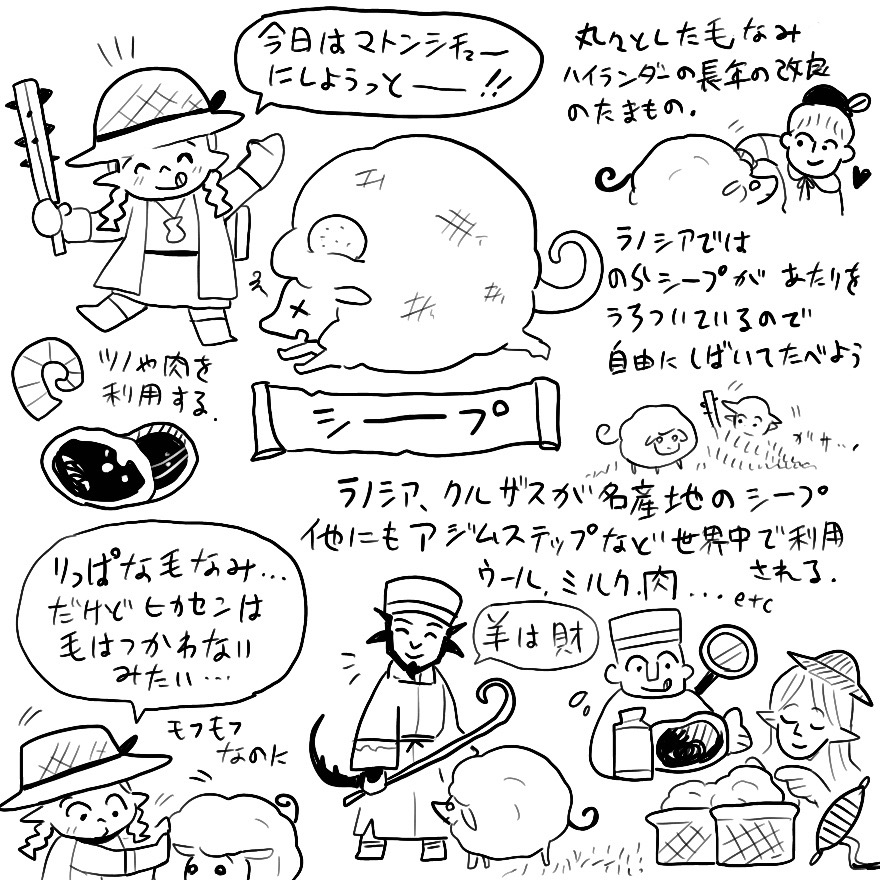 今日はマトンシチュー
にしようっとー!!
丸々とした毛なみ
ハイランダーの長年の改良
のたまもの.
ラノシアでは
のらシープが あたりを
うろついているので
自由に しばいてたべよう
ガサ…
ツノや肉を
利用する.
シープ
ラノシア、クルザスが名産地のシープ
他にもアジムステップなど世界中で利用
される.
ウール、ミルク、肉…etc
りっぱな毛なみ…
だけど ヒカセンは
毛はつかわない
みたい…
モフモフ
なのに
羊は財